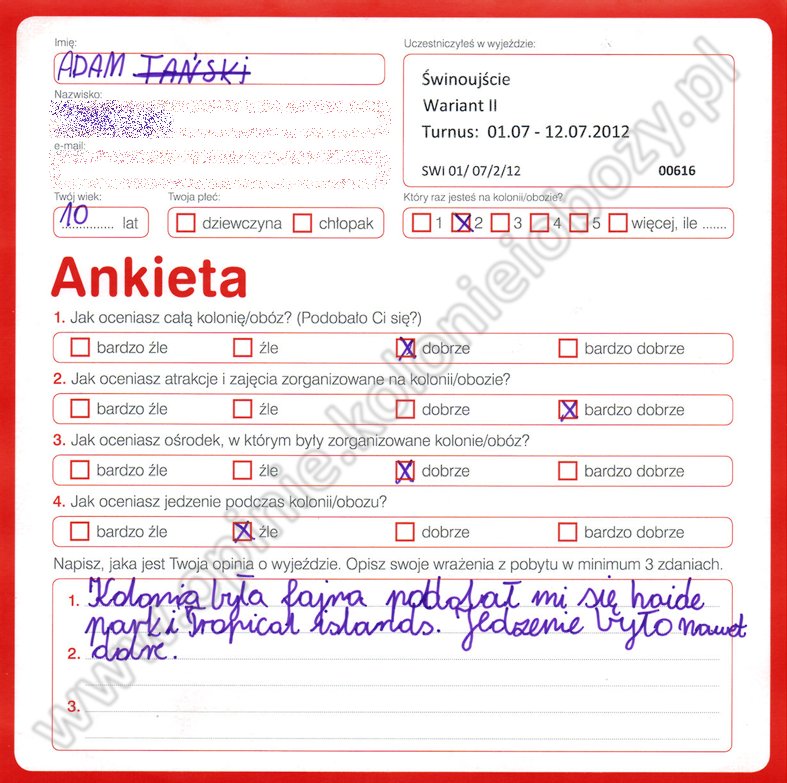 Imię:
ADAM TAŃSKi
Uczestniczyłeś w wyjeździe:
Świnoujście
Wariant II
Turnus: 01.07 - 12.07.2012
SWI 01/ 07/2/12 00616
Nazwisko:
e-mail:
Twój wiek:
10 lat
Twoja płeć:
dziewczyna chłopak
Który raz jesteś na kolonii/obozie?
1 2 3 4 5 więcej, ile .......
Ankieta
1. Jak oceniasz całą kolonię/obóz? (Podobało Ci się?)
bardzo źle źle dobrze bardzo dobrze
2. Jak oceniasz atrakcje i zajęcia zorganizowane na kolonii/obozie?
bardzo źle źle dobrze bardzo dobrze
3. Jak oceniasz ośrodek, w którym były zorganizowane kolonie/obóz?
bardzo źle źle dobrze bardzo dobrze
4. Jak oceniasz jedzenie podczas kolonii/obozu?
bardzo źle źle dobrze bardzo dobrze
Napisz, jaka jest Twoja opinia o wyjeździe. Opisz swoje wrażenia z pobytu w minimum 3 zdaniach.
1. Kolonią była fajna podobał mi się haide
park i Tropical islands. Jedzenie było nawet
2. dobre.
3.
www.opinie.kolonieiobozy.pl